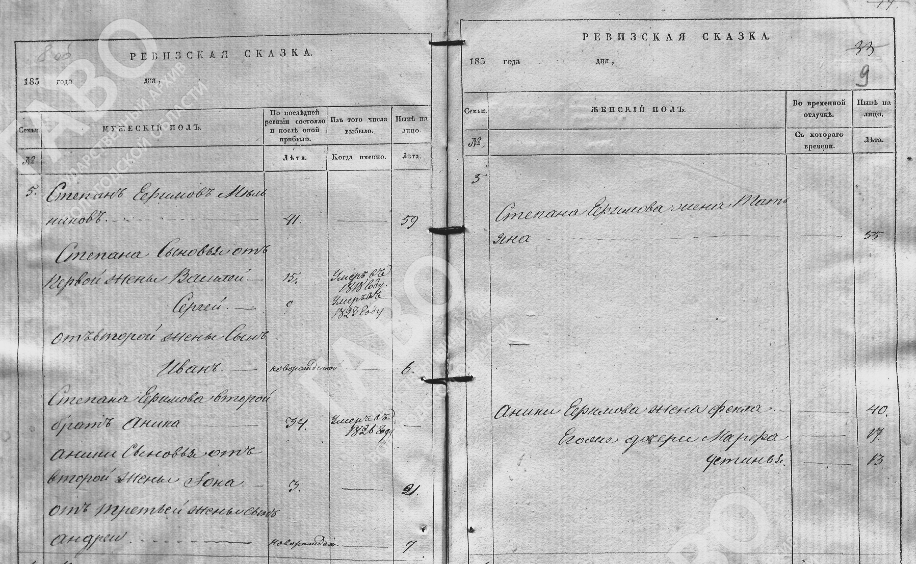 РЕВИЗСКАЯ СКАЗКА.
183 года дня,
Семьи.
МУЖЕСКІЙ ПОЛЪ.
По послѣдней ревизіи состояло и послѣ оной прибыло.
Изъ того числа выбыло.
Нынѣ на лицо.
№
Лѣта.
Когда именно.
Лѣта.
5. Степанъ Ефимовъ Мель
никовъ 41 59
Степана Сыновья отъ
первой жены Василей 15. Умеръ въ 1818 Году.
Сергей 1823 Году
отъ второй жены Сынъ
Иванъ новорожденной 6.
Степана Ефимова второй
братъ Аника 34. Умеръ въ 1826 Году
Аники Сыновья отъ
второй жены 3. 21.
отъ третьей жены сынъ
андрей новорожден 7
РЕВИЗСКАЯ СКАЗКА.
33
183 года дня,
9
Семьи.
ЖЕНСКІЙ ПОЛЪ.
Во временной отлучкѣ.
Нынѣ на лицо.
№
Съ котораго времени.
Лѣта.
5
Степана Ефимова жена Тать
яна 55
Аники Ефимова жена фекла 40.
Егоже дочери Марфа 17.
Устинья 13
ГАВО